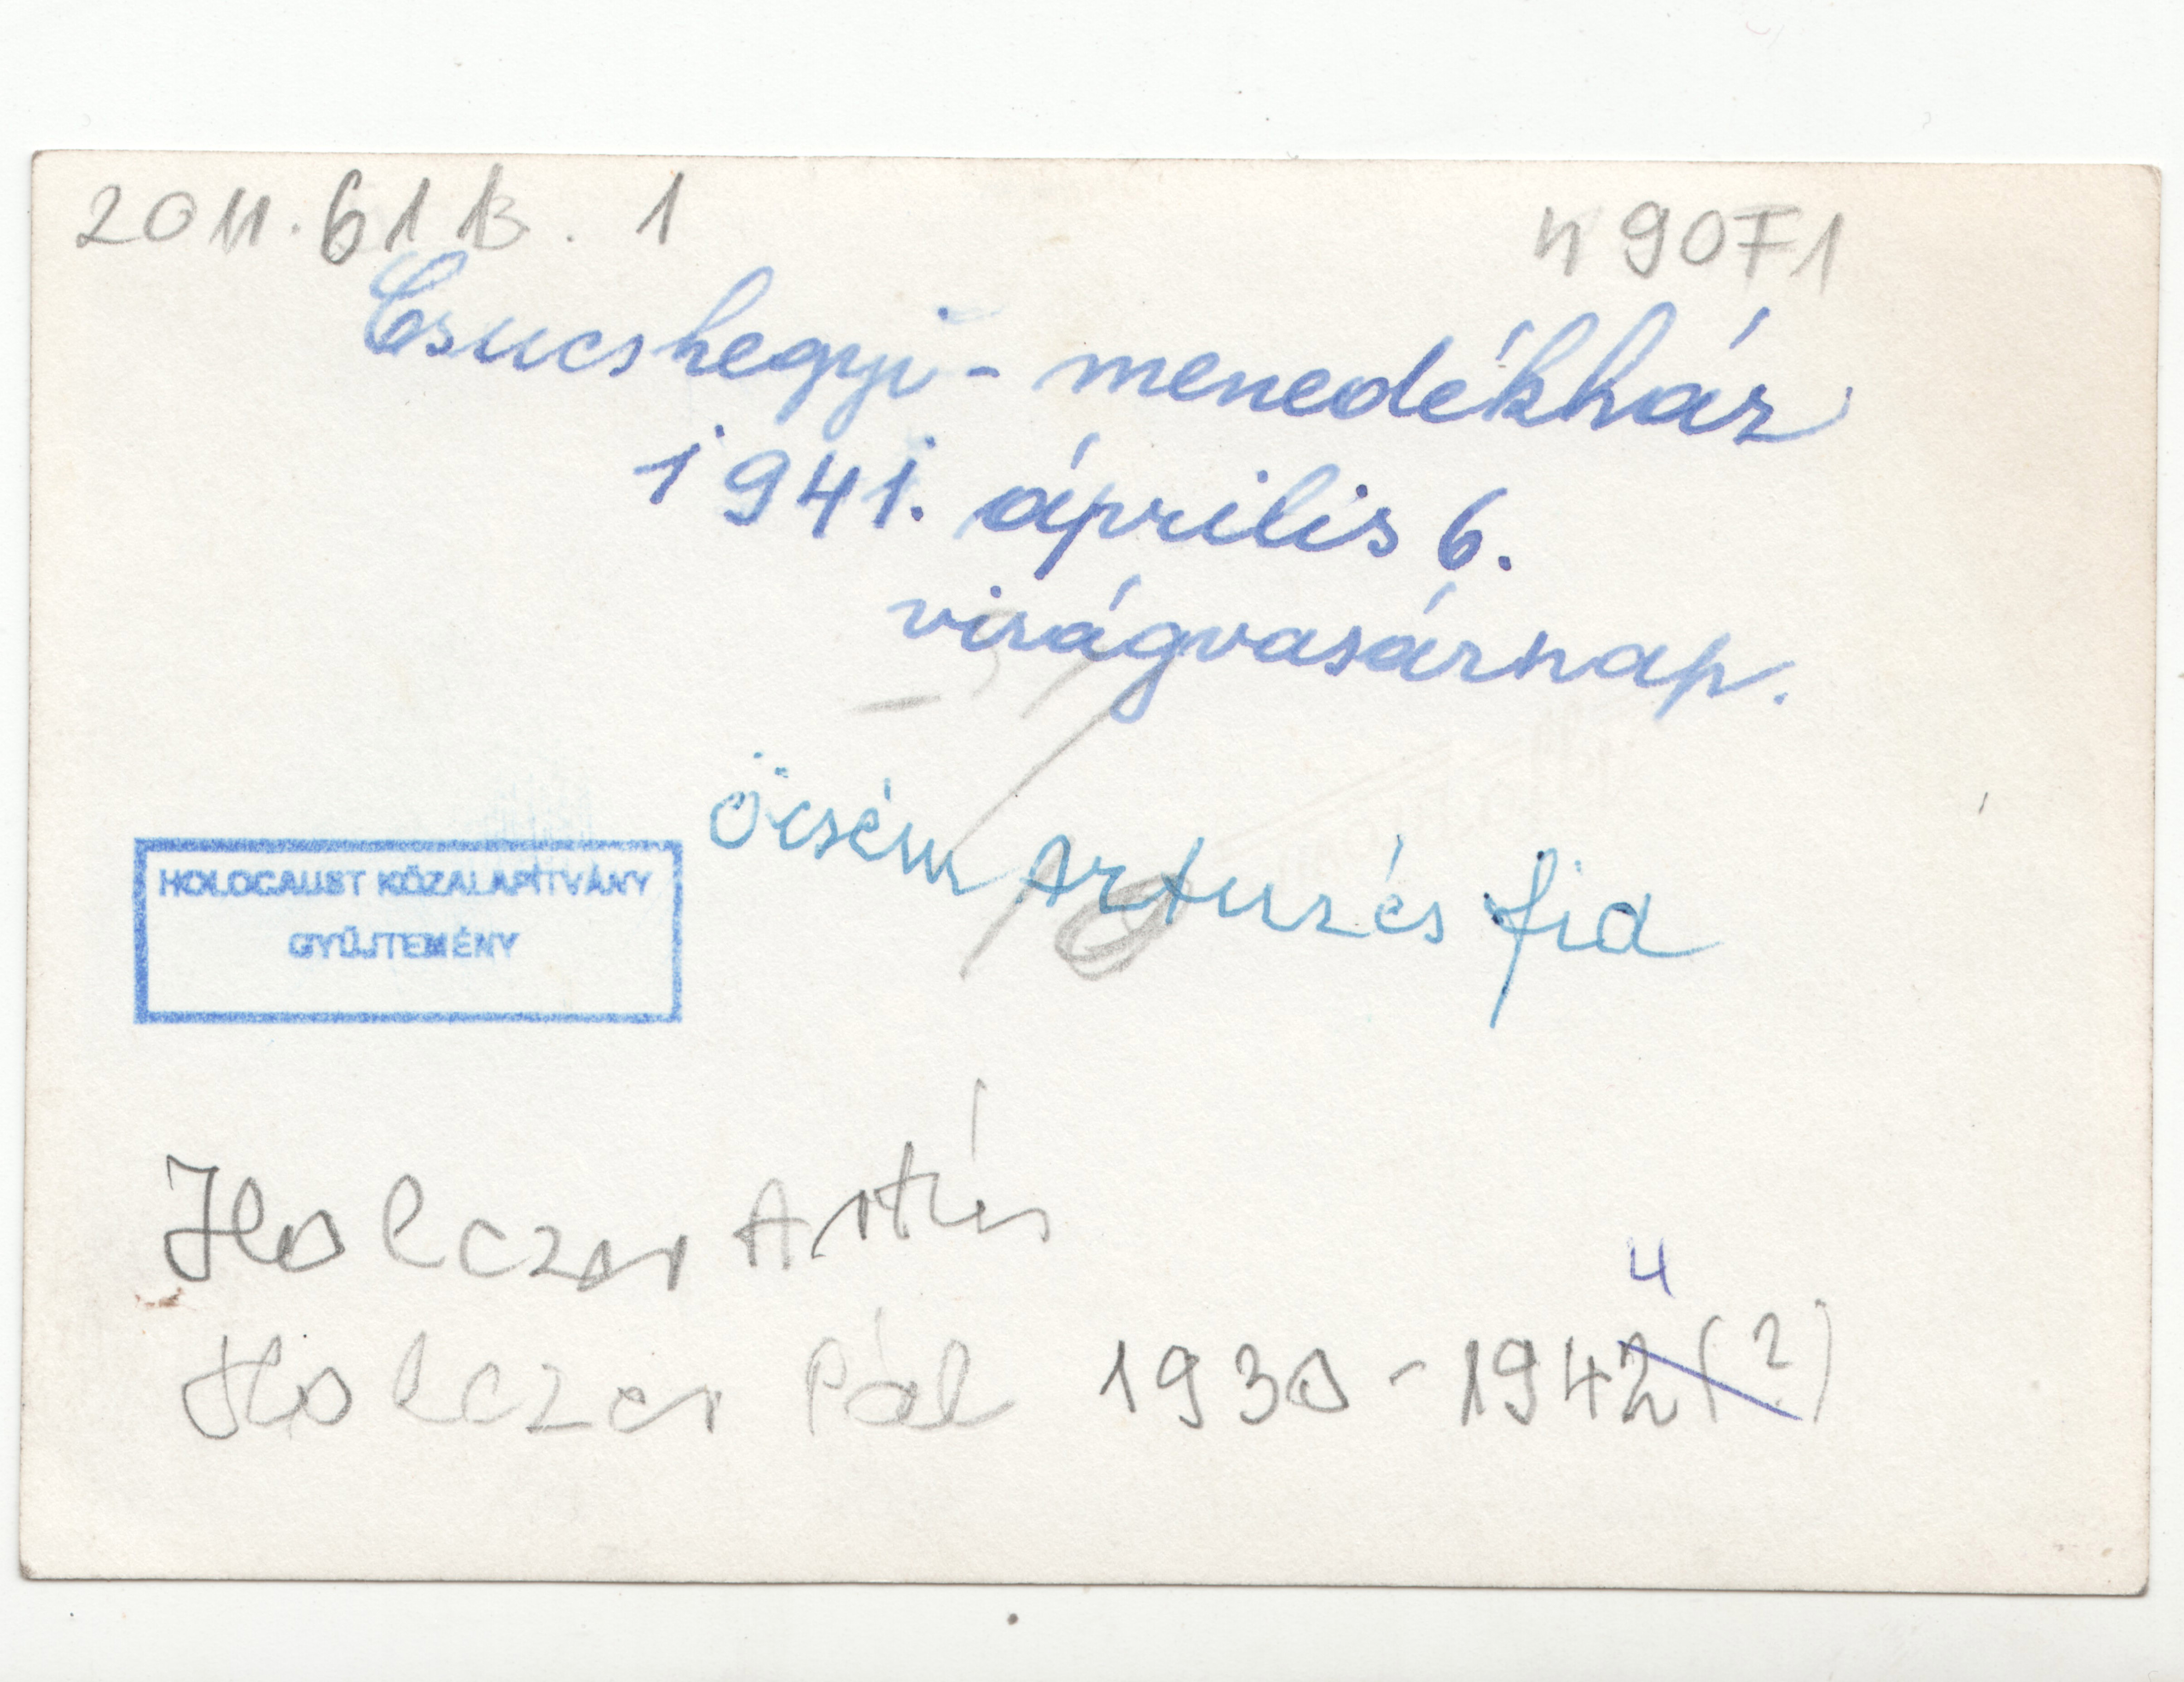 2011.61B.1
4907.1
Csucshegyi - menedékház
1941. április 6.
virágvasárnap.
Öcsém Artur és fia
HOLOCAUST KÖZALAPÍTVÁNY
GYŰJTEMÉNY
Holczer Artúr
4
Holczer Pál 1930 - 1942 (?)